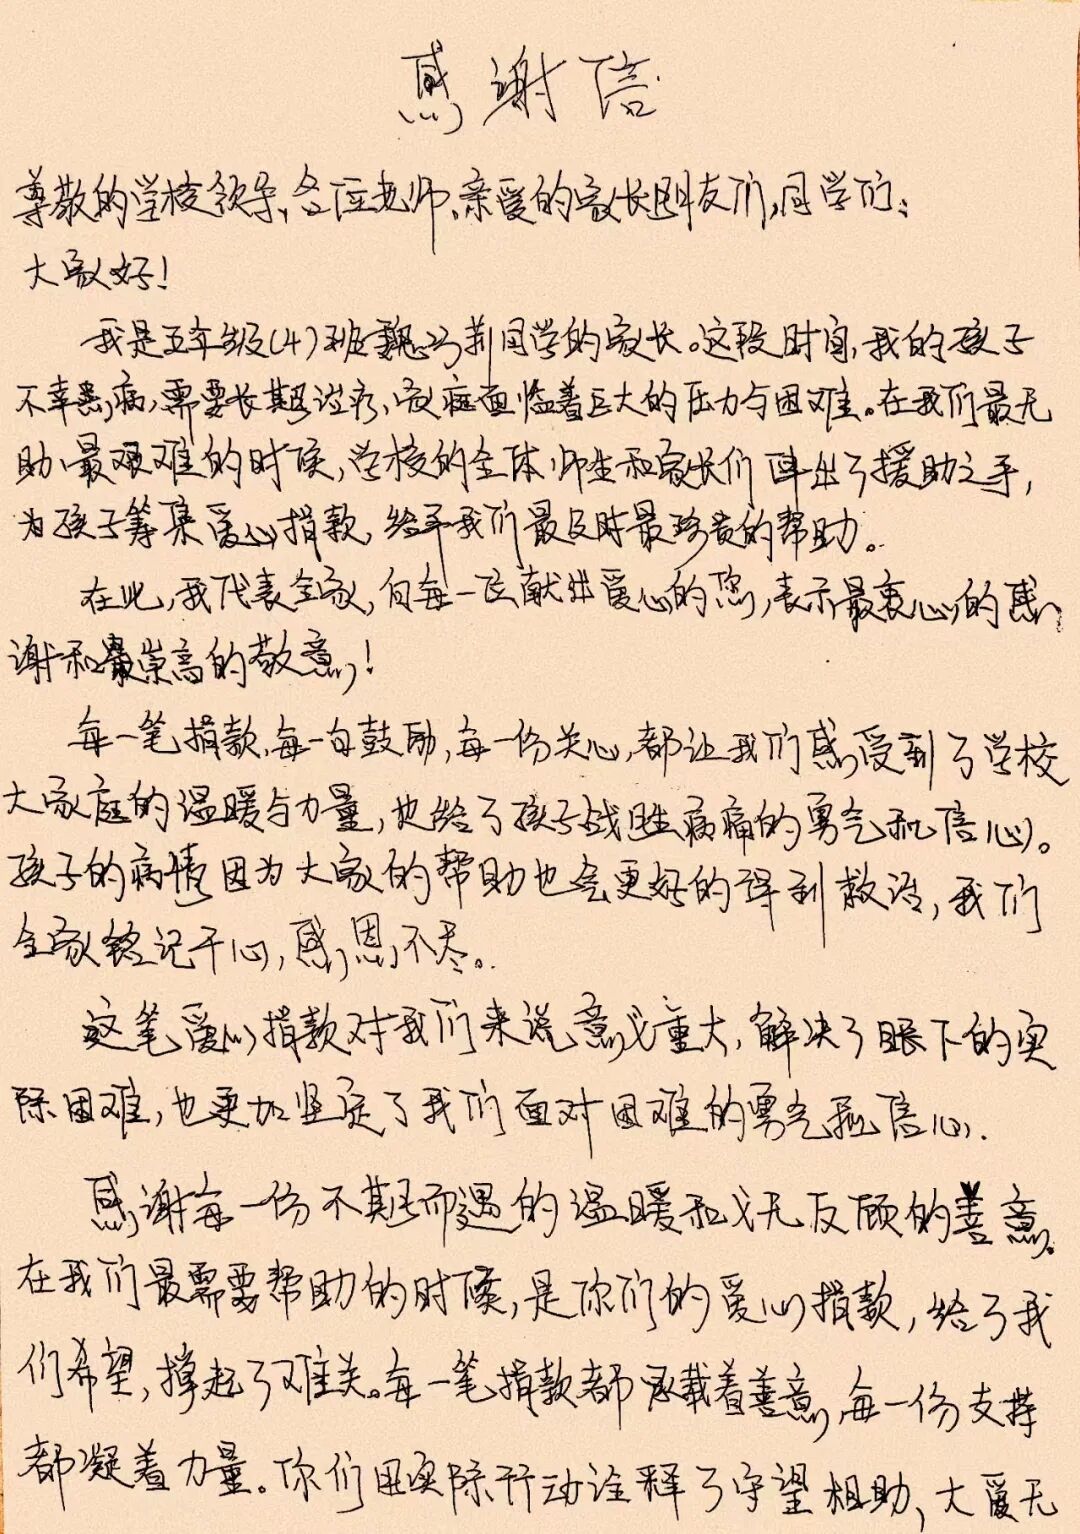 感谢信
尊敬的学校领导,各位老师、亲爱的家长朋友们,同学们:
大家好!
我是五年级(4)班魏巧荆同学的家长。这段时间,我的孩子
不幸患病,需要长期治疗,家庭面临着巨大的压力与困难。在我们最无
助、最艰难的时候,学校的全体师生和家长们伸出了援助之手,
为孩子筹集爱心捐款,给予我们最及时最珍贵的帮助。
在此,我代表全家,向每一位献出爱心的您,表示最衷心的感
谢和最崇高的敬意!
每一笔捐款,每一句鼓励,每一份关心,都让我们感受到了学校
大家庭的温暖与力量,也给了孩子战胜病痛的勇气和信心。
孩子的病情因为大家的帮助也会更好的得到救治,我们
全家铭记于心,感恩不尽。
这笔爱心捐款对我们来说意义重大,解决了眼下的实
际困难,也更加坚定了我们面对困难的勇气和信心.
感谢每一份不期而遇的温暖和义无反顾的善意。
在我们最需要帮助的时候,是你们的爱心捐款,给了我
们希望,撑起了难关。每一笔捐款都承载着善意,每一份支持
都凝着力量。你们用实际行动诠释了守望相助、大爱无